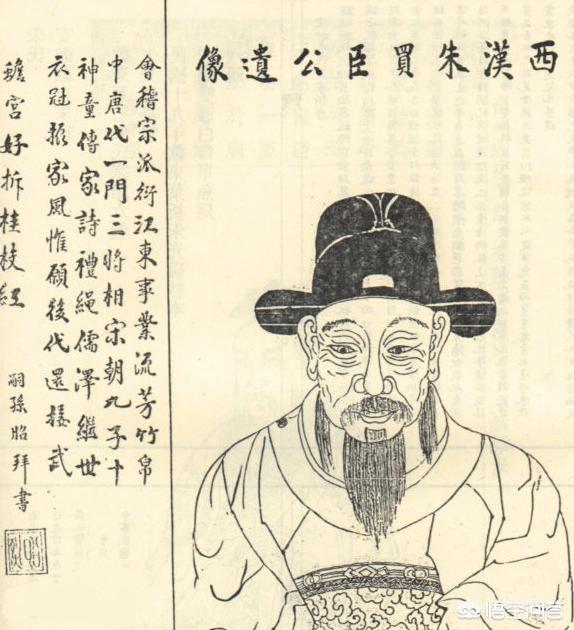 西漢朱買臣公遺像
會稽宗派衍江東事業流芳竹帛
中唐代一門三將相宋朝九子十
神童傳家詩禮繩儒澤繼世
衣冠振家風惟願後代還接武
蟾宮好拆桂枝紅
嗣孫昭拜書
悟空问答